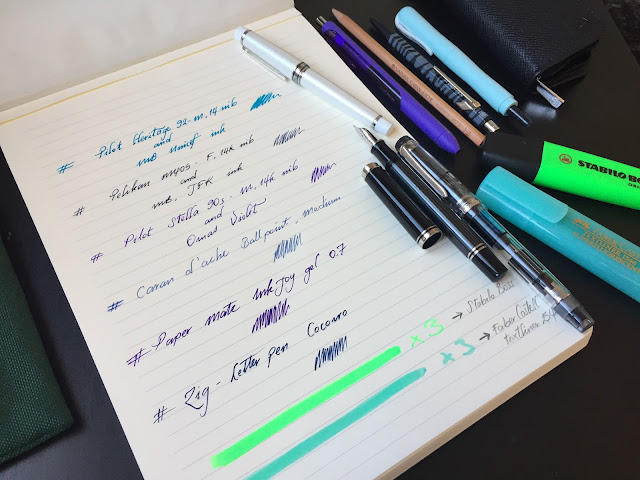 # Pilot Heritage 92. M. 14 nib
and
MB Unicef ink
# Pelikan M405. F. 14k nib
and
MB. JFK ink
# Pilot Stella 90s. M. 14k nib
and
Omas Violet
# Caran d'ache Ballpoint. Medium
# Paper mate InkJoy gel 0.7
# Zig - Letter pen Cocoiro
x3 → Stabilo Boss
x3 → Faber Castell
Textliner
STABILO BO